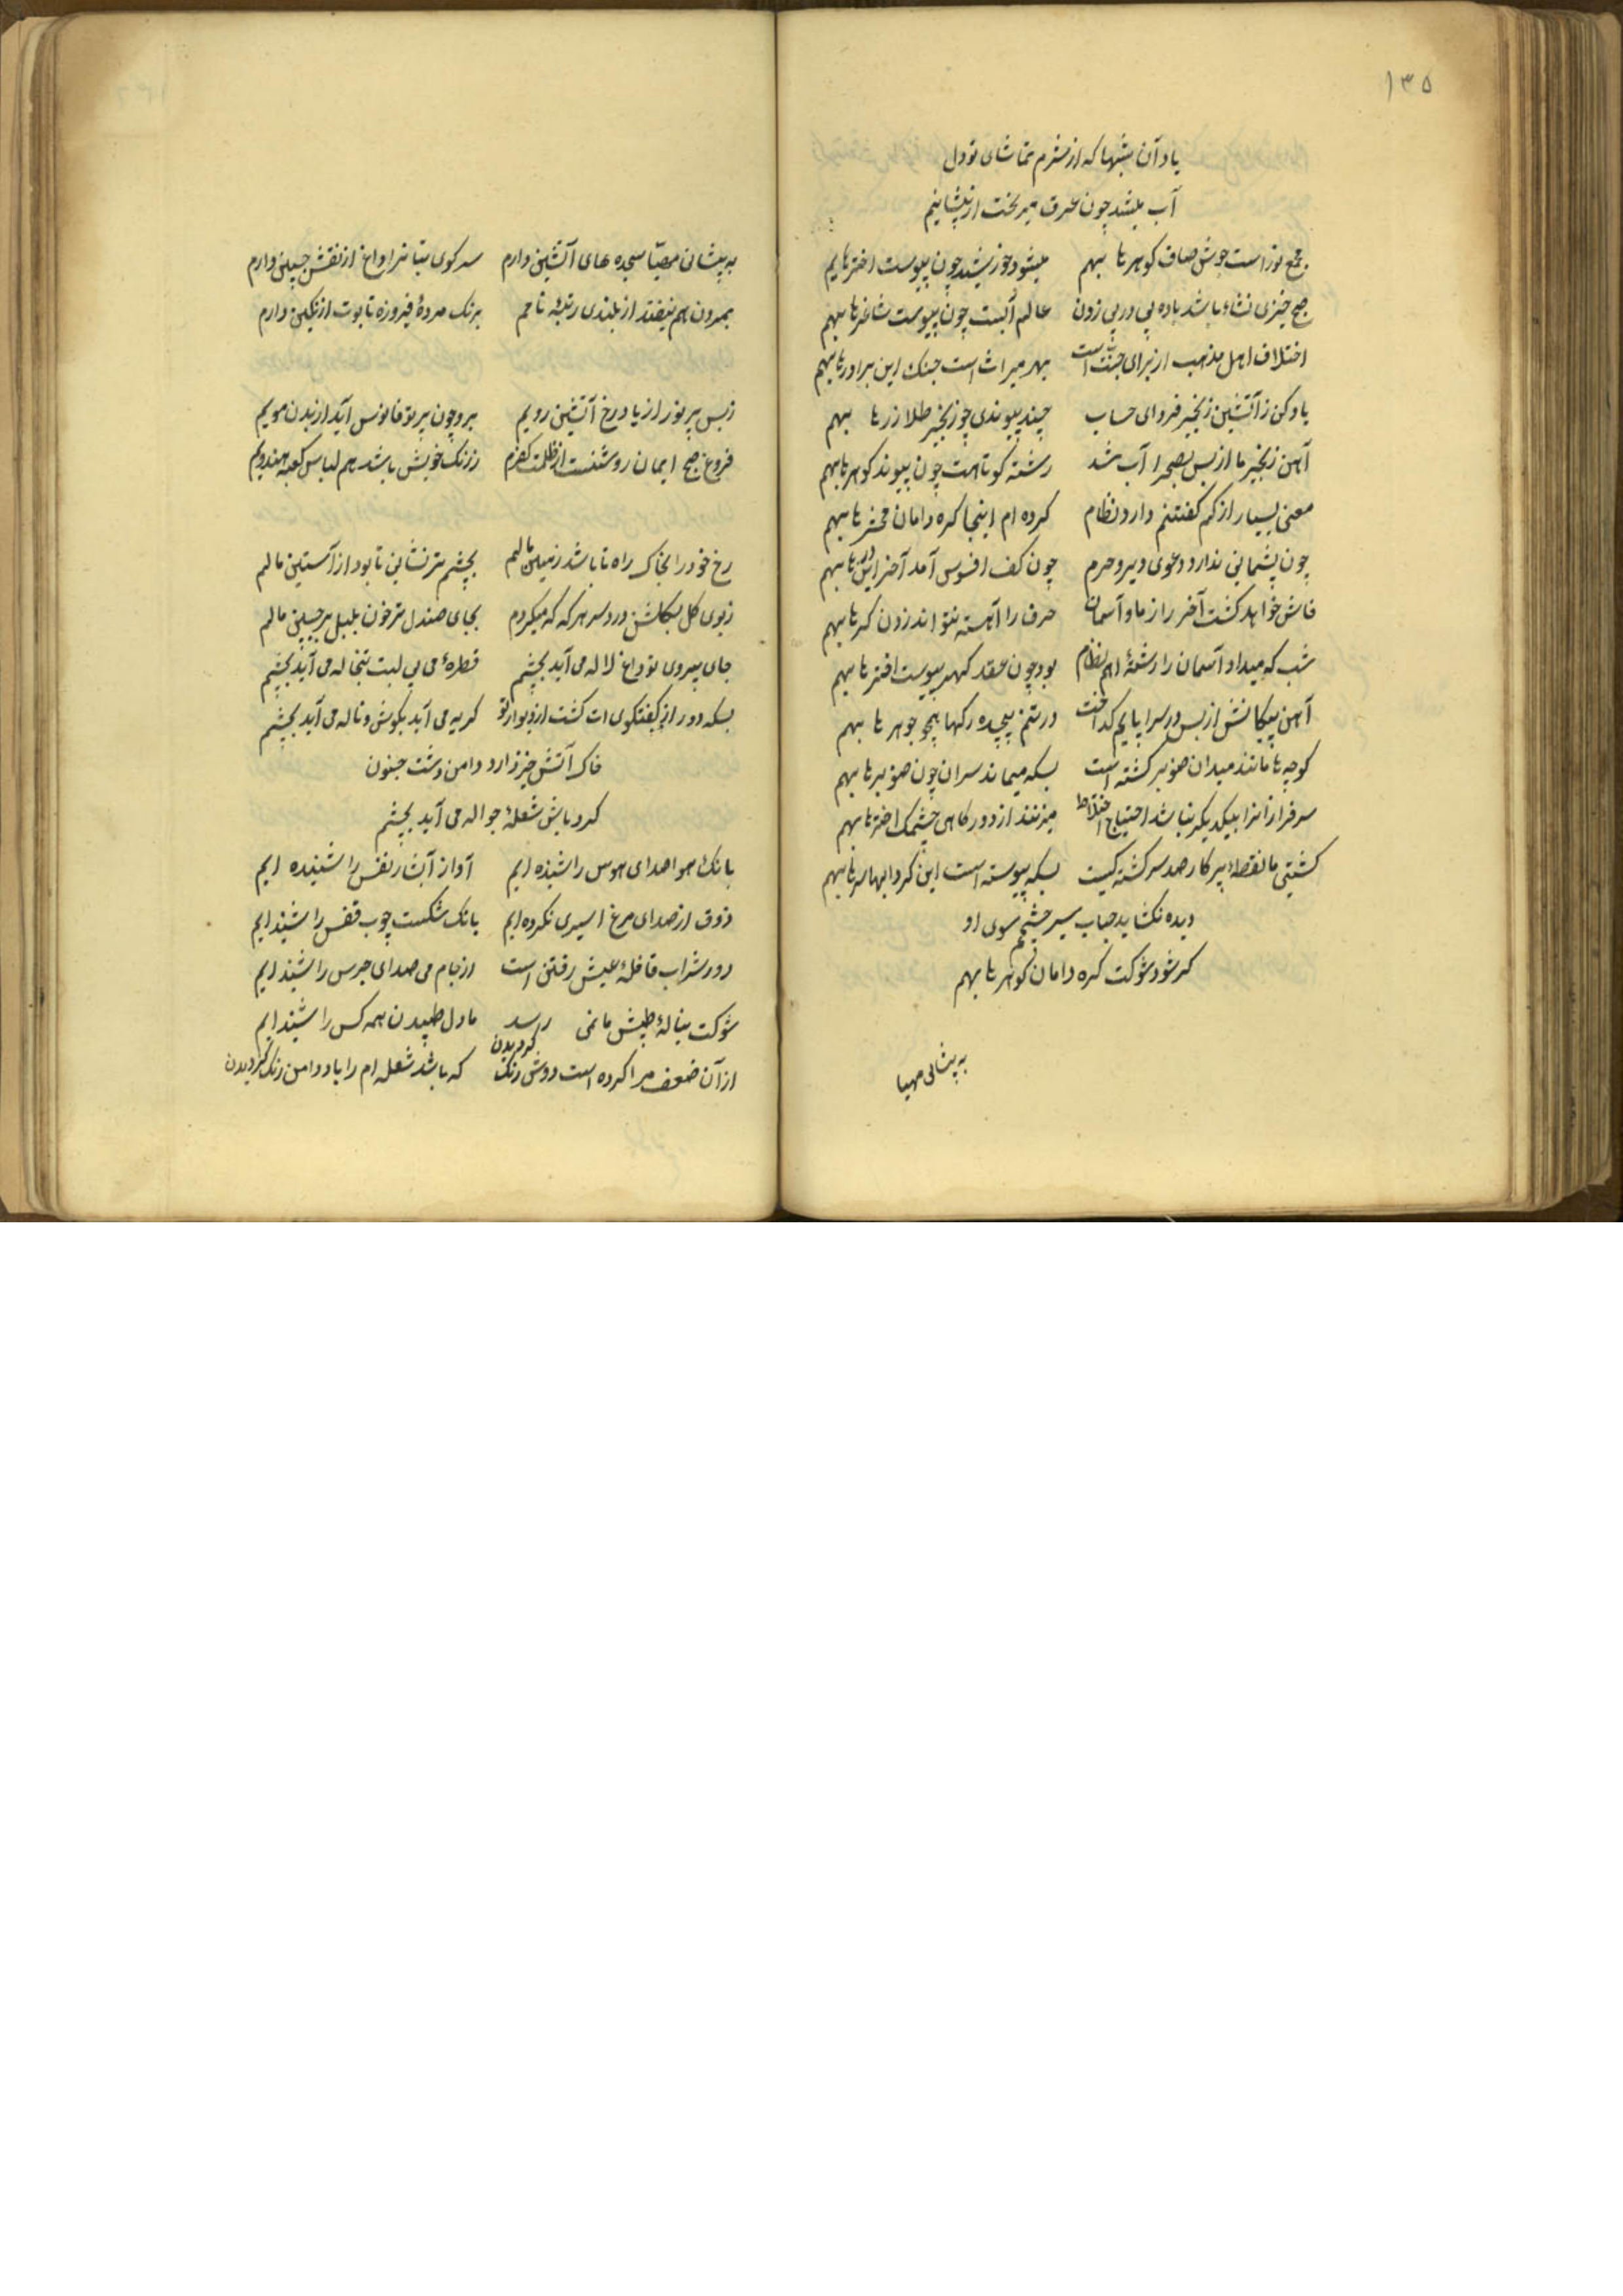 ۱۳۵
یاد آن شبها که از شرم تماشای تو دل
آب میشد چون عرق میریخت از پیشانیم
مجمع نوراست جوش صاف کوهرها بهم میشود خورشید چون پیوست اخترهایم
صبح خیزی نشاء باشد باده پی در پی زدن عالم آبست چون پیوست ساغرها بهم
اختلاف اهل مذهب از برای جنت است بهر میراث است جنک این برادرها بهم
یاد کن ز آتشین زنجیر فردای حساب چند پیوندی چو زنجیر طلا زرها بهم
آهن زنجیر ما از بس بصحرا آب شد رشته کوتاهست چون پیوند کوهرها بهم
معنی بسیار از کم کفتنم دارد نظام کرده ام اینجا کره دامان محشرها بهم
چون پشمانی ندارد دعوی دیر و حرم چون کف افسوس آمد آخر این درها بهم
فاش خواهد کشت آخر راز ما و آسمان حرف را آهسته نتواند زدن کرها بهم
شب که میداد آسمان را رشتهٔ اهم نظام بود چون عقد کهر پیوست اخترها بهم
آهن پیکانش از بس در سراپایم کداخت در تنم پیچیده رکها همچو جوهرها بهم
کوچه ها مانند میدان صنوبر کشته است بسکه میماند سران چون صنوبرها بهم
سرفرازانرا بیکدیکر نباشد احتیاج اختلاط میزنند از دور کاهی چشمک اخترها بهم
کشتی ما نقطهٔ پرکار صد سرکشته کیست بسکه پیوسته است این کردابها سرها بهم
دیده نکشاید حباب سیر چشم سوی او
کر شود شوکت کره دامان کوهرها بهم
به پیشانی مهیا
به پیشانی مهیا سجده های آتشین دارم سر کوی بتانرا داغ از نقش جبین دارم
بمردن هم نیفتد از بلندی رتبهٔ نامم برنک مردهٔ فیروزه تابوت از نکین دارم
ز بس پر نور از یاد رخ آتشین رویم برد چون پرتو فانوس آید از بدن مویم
فروغ صبح ایمان روشنست از ظلمت کفرم ز رنک خویش باشد هم لباس کعبه هندویم
رخ خود را بخاک راه تا باشد زمین مالم بچشم تر نشانی تا بود از آستین مالم
ز بوی کل بکلشن درد سر هر که که میکردم بجای صندل تر خون بلبل بر جبین مالم
جای پیروی تو داغ لاله می آید بچشم قطرهٔ می بی لبت تبخاله می آید بچشم
بسکه دور از کفتکوی ات کشت از دیوار تو کریه می آید بکوش و ناله می آید بچشم
خاک آتش خیز دارد دامن دشت جنون
کردبادش شعلهٔ جواله می آید بچشم
بانک هوا صدای هوس را شنیده ایم آواز آبشار نفس را شنیده ایم
ذوق از صدای مرغ اسیری نکرده ایم بانک شکست چوب قفس را شنیده ایم
دور شراب قافلهٔ عیش رفتنی است از جام می صدای جرس را شنیده ایم
شوکت بنالهٔ طپش ما نمی رسد ما دل طپیدن همه کس را شنیده ایم
از آن ضعف مرا کرده است دوش رنک کردیدن که باشد شعله ام را باد دامن رنک کردیدن